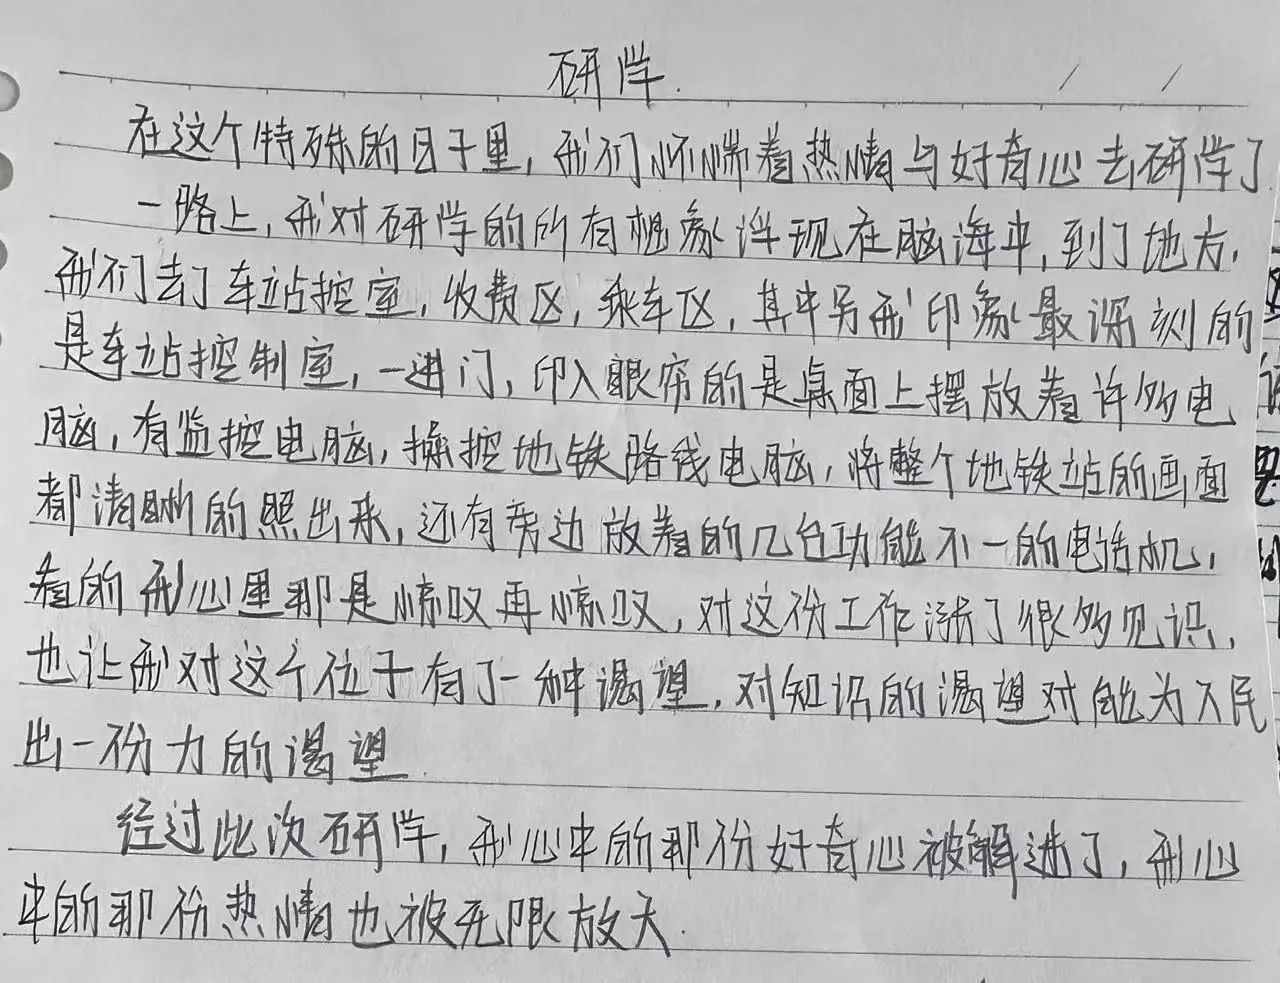 研学.
在这个特殊的日子里，我们怀揣着热情与好奇心去研学了
一路上，我对研学的所有想象浮现在脑海中，到了地方，
我们去了车站控室，收费区，乘车区，其中另我印象最深刻的
是车站控制室，一进门，印入眼帘的是桌面上摆放着许多电
脑，有监控电脑，操控地铁路线电脑，将整个地铁站的画面
都清晰的照出来，还有旁边放着的几台功能不一的电话机，
看的我心里那是惊叹再惊叹，对这份工作涨了很多见识，
也让我对这个位于有了一种渴望，对知识的渴望对能为人民
出一份力的渴望
经过此次研学，我心中的那份好奇心被解迷了，我心
中的那份热情也被无限放大.